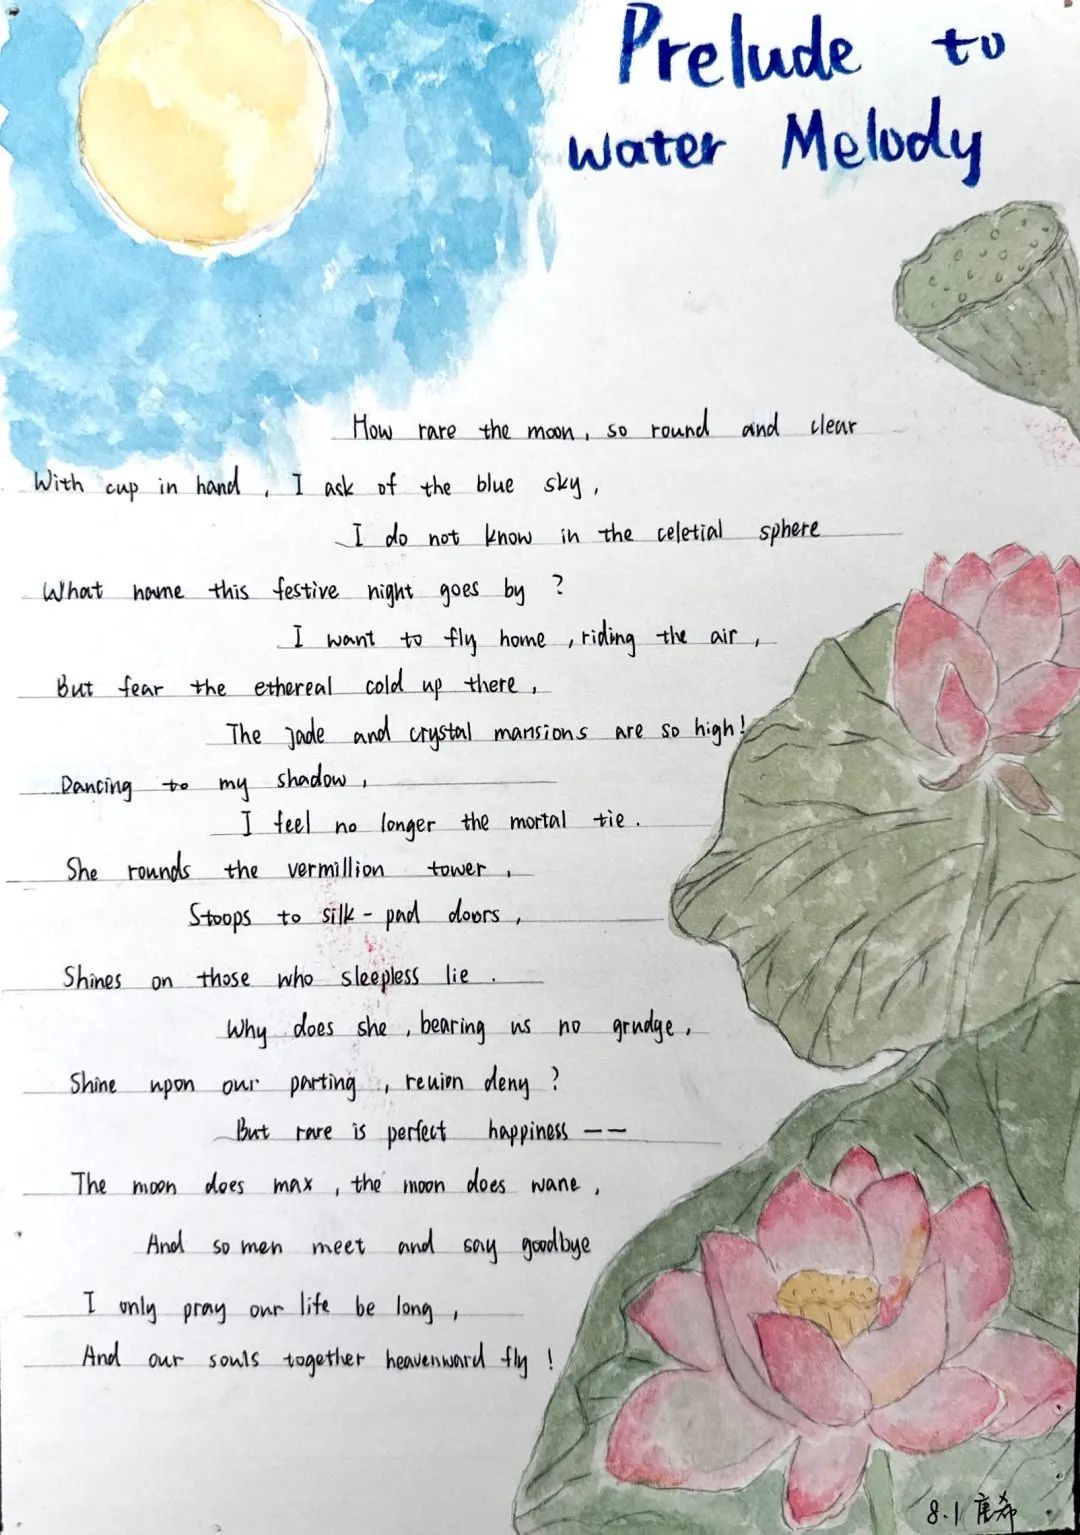 Prelude to
water Melody
How rare the moon, so round and clear
With cup in hand, I ask of the blue sky,
I do not know in the celetial sphere
What name this festive night goes by?
I want to fly home, riding the air,
But fear the ethereal cold up there,
The jade and crystal mansions are so high!
Dancing to my shadow,
I feel no longer the mortal tie.
She rounds the vermillion tower,
Stoops to silk-pad doors,
Shines on those who sleepless lie.
Why does she, bearing us no grudge,
Shine upon our parting, reuion deny?
But rare is perfect happiness --
The moon does max, the moon does wane,
And so men meet and say goodbye
I only pray our life be long,
And our souls together heavenward fly!
8.1 唐希